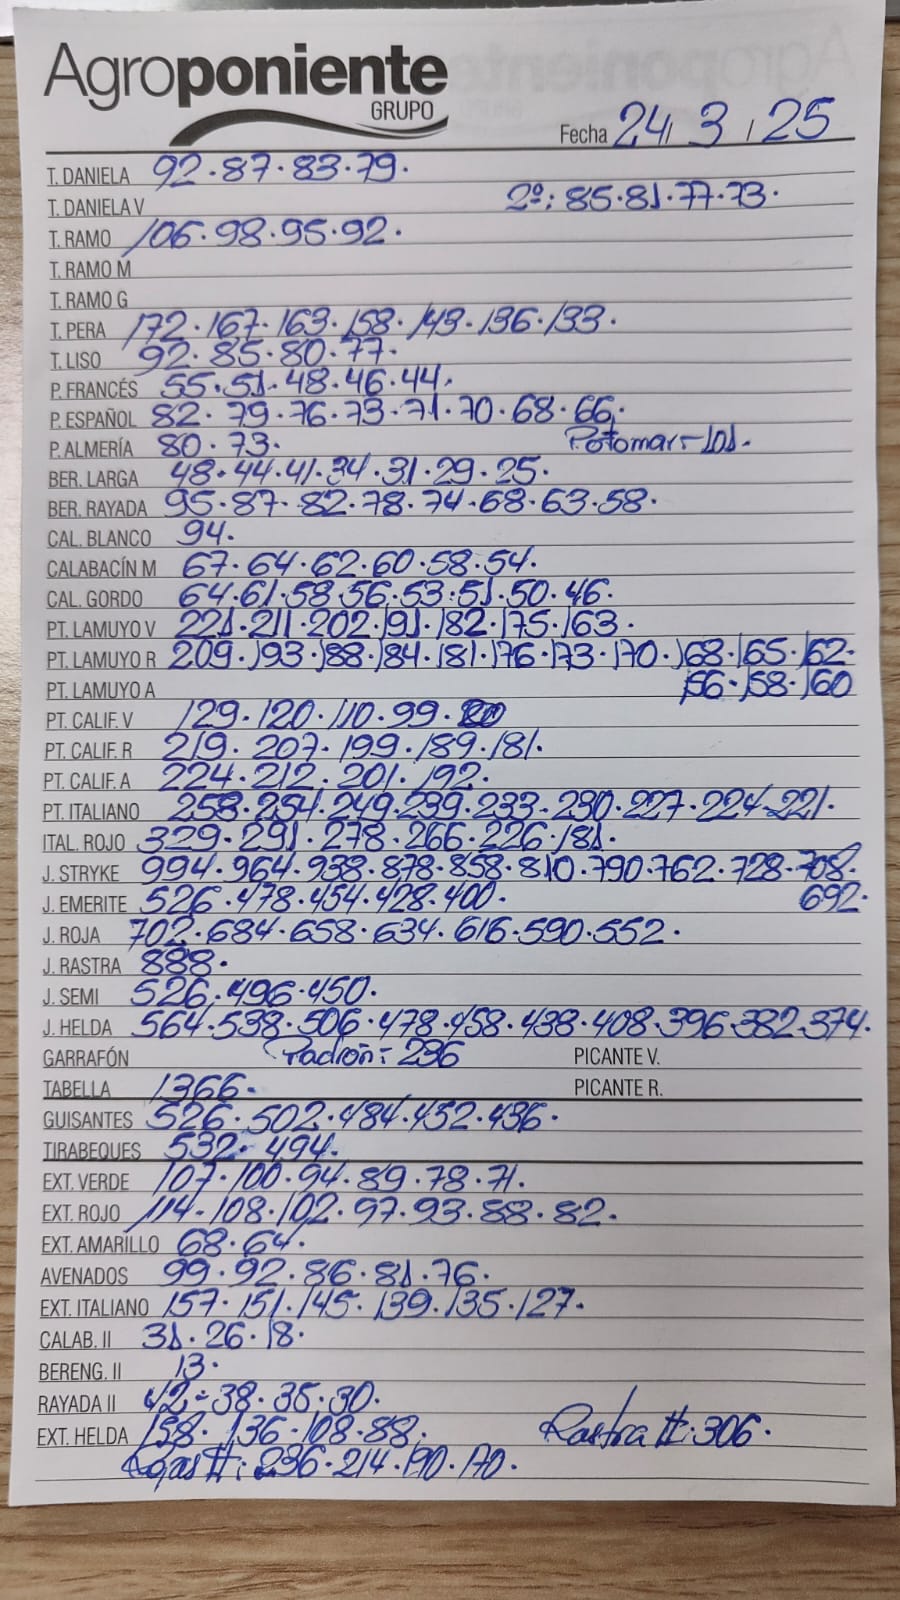 Agroponiente
GRUPO
Fecha 24 / 3 / 25
T. DANIELA 92 · 87 · 83 · 79 ·
T. DANIELA V 2º: 85 · 81 · 77 · 73 ·
T. RAMO 106 · 98 · 95 · 92 ·
T. RAMO M
T. RAMO G
T. PERA 172 · 167 · 163 · 158 · 143 · 136 · 133 ·
T. LISO 92 · 85 · 80 · 77 ·
P. FRANCÉS 55 · 51 · 48 · 46 · 44 ·
P. ESPAÑOL 82 · 79 · 76 · 73 · 71 · 70 · 68 · 66 ·
P. ALMERÍA 80 · 73 · Potomar - 101 ·
BER. LARGA 48 · 44 · 41 · 34 · 31 · 29 · 25 ·
BER. RAYADA 95 · 87 · 82 · 78 · 74 · 68 · 63 · 58 ·
CAL. BLANCO 94 ·
CALABACÍN M 67 · 64 · 62 · 60 · 58 · 54 ·
CAL. GORDO 64 · 61 · 58 · 56 · 53 · 51 · 50 · 46 ·
PT. LAMUYO V 221 · 211 · 202 · 191 · 182 · 175 · 163 ·
PT. LAMUYO R 209 · 193 · 188 · 184 · 181 · 176 · 173 · 170 · 168 · 165 · 162 ·
PT. LAMUYO A 156 · 158 · 160
PT. CALIF. V 129 · 120 · 110 · 99 ·
PT. CALIF. R 219 · 207 · 199 · 189 · 181 ·
PT. CALIF. A 224 · 212 · 201 · 192 ·
PT. ITALIANO 258 · 254 · 249 · 239 · 233 · 230 · 227 · 224 · 221 ·
ITAL. ROJO 329 · 291 · 278 · 266 · 226 · 181 ·
J. STRYKE 994 · 964 · 938 · 878 · 858 · 810 · 790 · 762 · 728 · 708 ·
J. EMERITE 526 · 478 · 454 · 428 · 400 · 692 ·
J. ROJA 702 · 684 · 658 · 634 · 616 · 590 · 552 ·
J. RASTRA 888 ·
J. SEMI 526 · 496 · 450 ·
J. HELDA 564 · 538 · 506 · 478 · 458 · 438 · 408 · 396 · 382 · 374 ·
GARRAFÓN Padron: 236 PICANTE V.
TABELLA 1366 · PICANTE R.
GUISANTES 526 · 502 · 484 · 452 · 436 ·
TIRABEQUES 532 · 494 ·
EXT. VERDE 107 · 100 · 94 · 89 · 78 · 71 ·
EXT. ROJO 114 · 108 · 102 · 97 · 93 · 88 · 82 ·
EXT. AMARILLO 68 · 64 ·
AVENADOS 99 · 92 · 86 · 81 · 76 ·
EXT. ITALIANO 157 · 151 · 145 · 139 · 135 · 127 ·
CALAB. II 31 · 26 · 18 ·
BERENG. II 13 ·
RAYADA II 42 - 38 · 35 · 30 ·
EXT. HELDA 158 · 136 · 108 · 88 · Rastra II: 306 ·
Rojas II: 236 · 214 · 190 · 170 ·